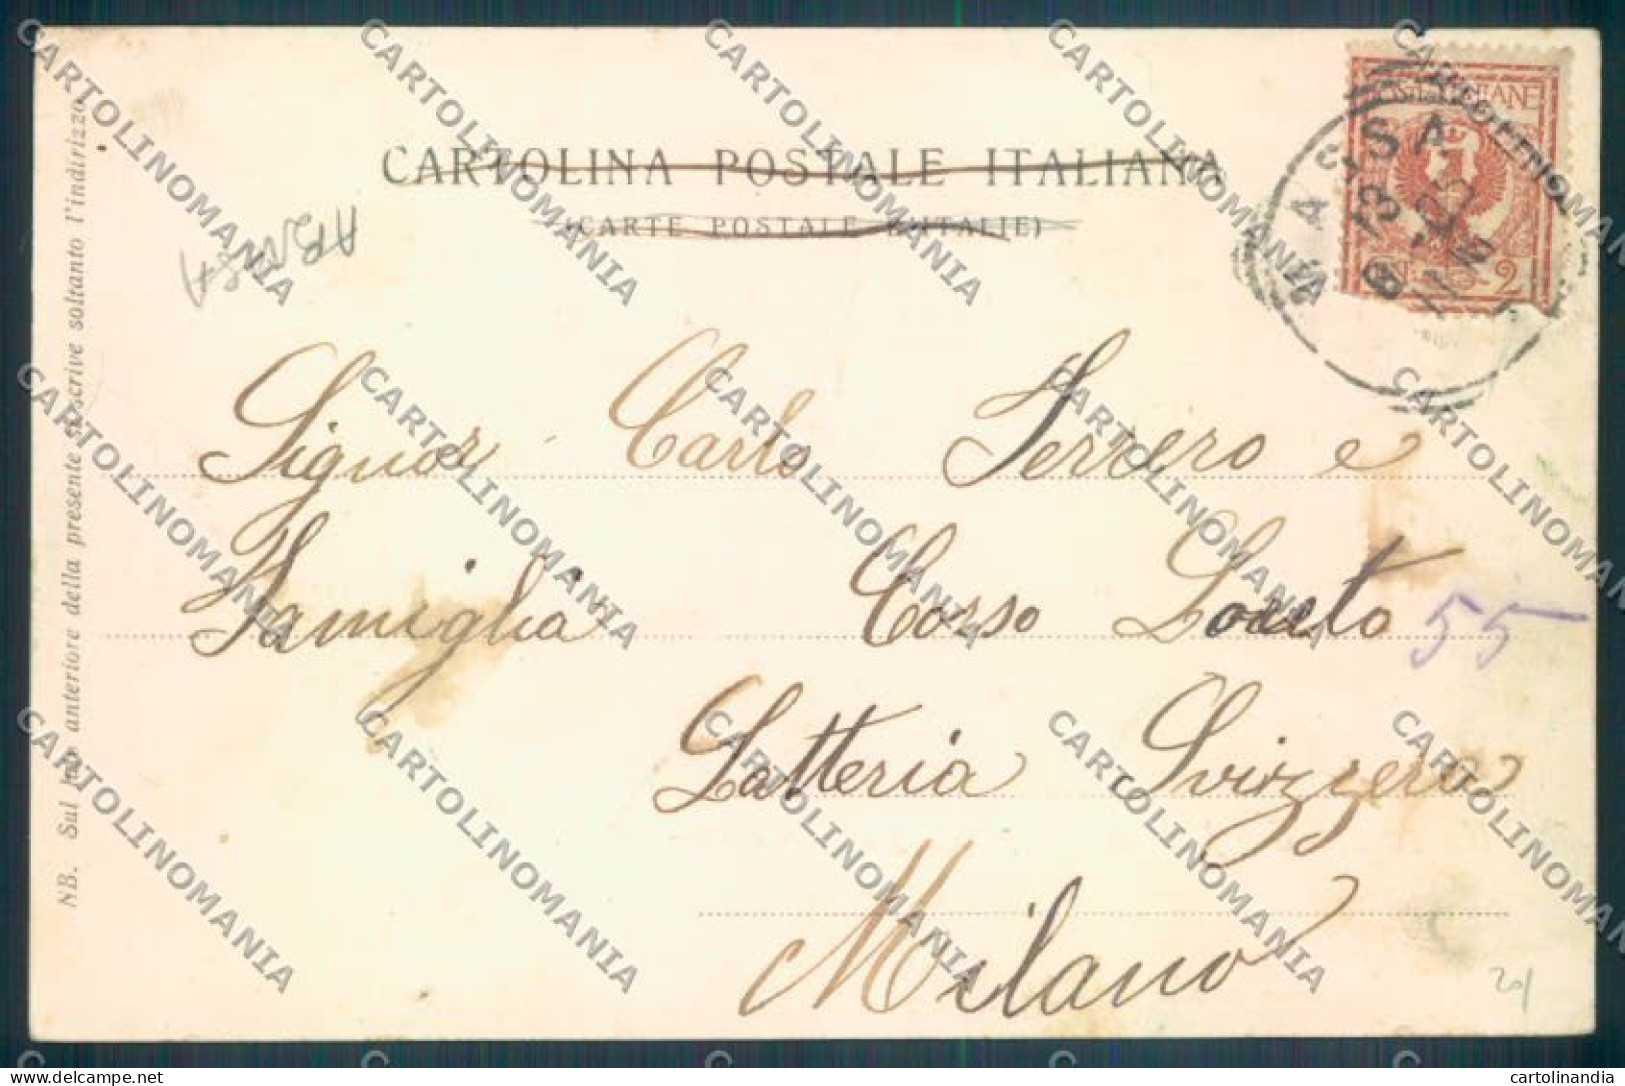 CARTOLINA POSTALE ITALIANA
(CARTE POSTALE D'ITALIE)
POSTE ITALIANE
CENT. 2
MASSA
NB. Sul lato anteriore della presente si scrive soltanto l'indirizzo.
Signor Carlo Ferrero e
Famiglia Corso Loreto 55
Latteria Svizzera
Milano
20/
CARTOLINOMANIA
delcampe.net
cartolinandia